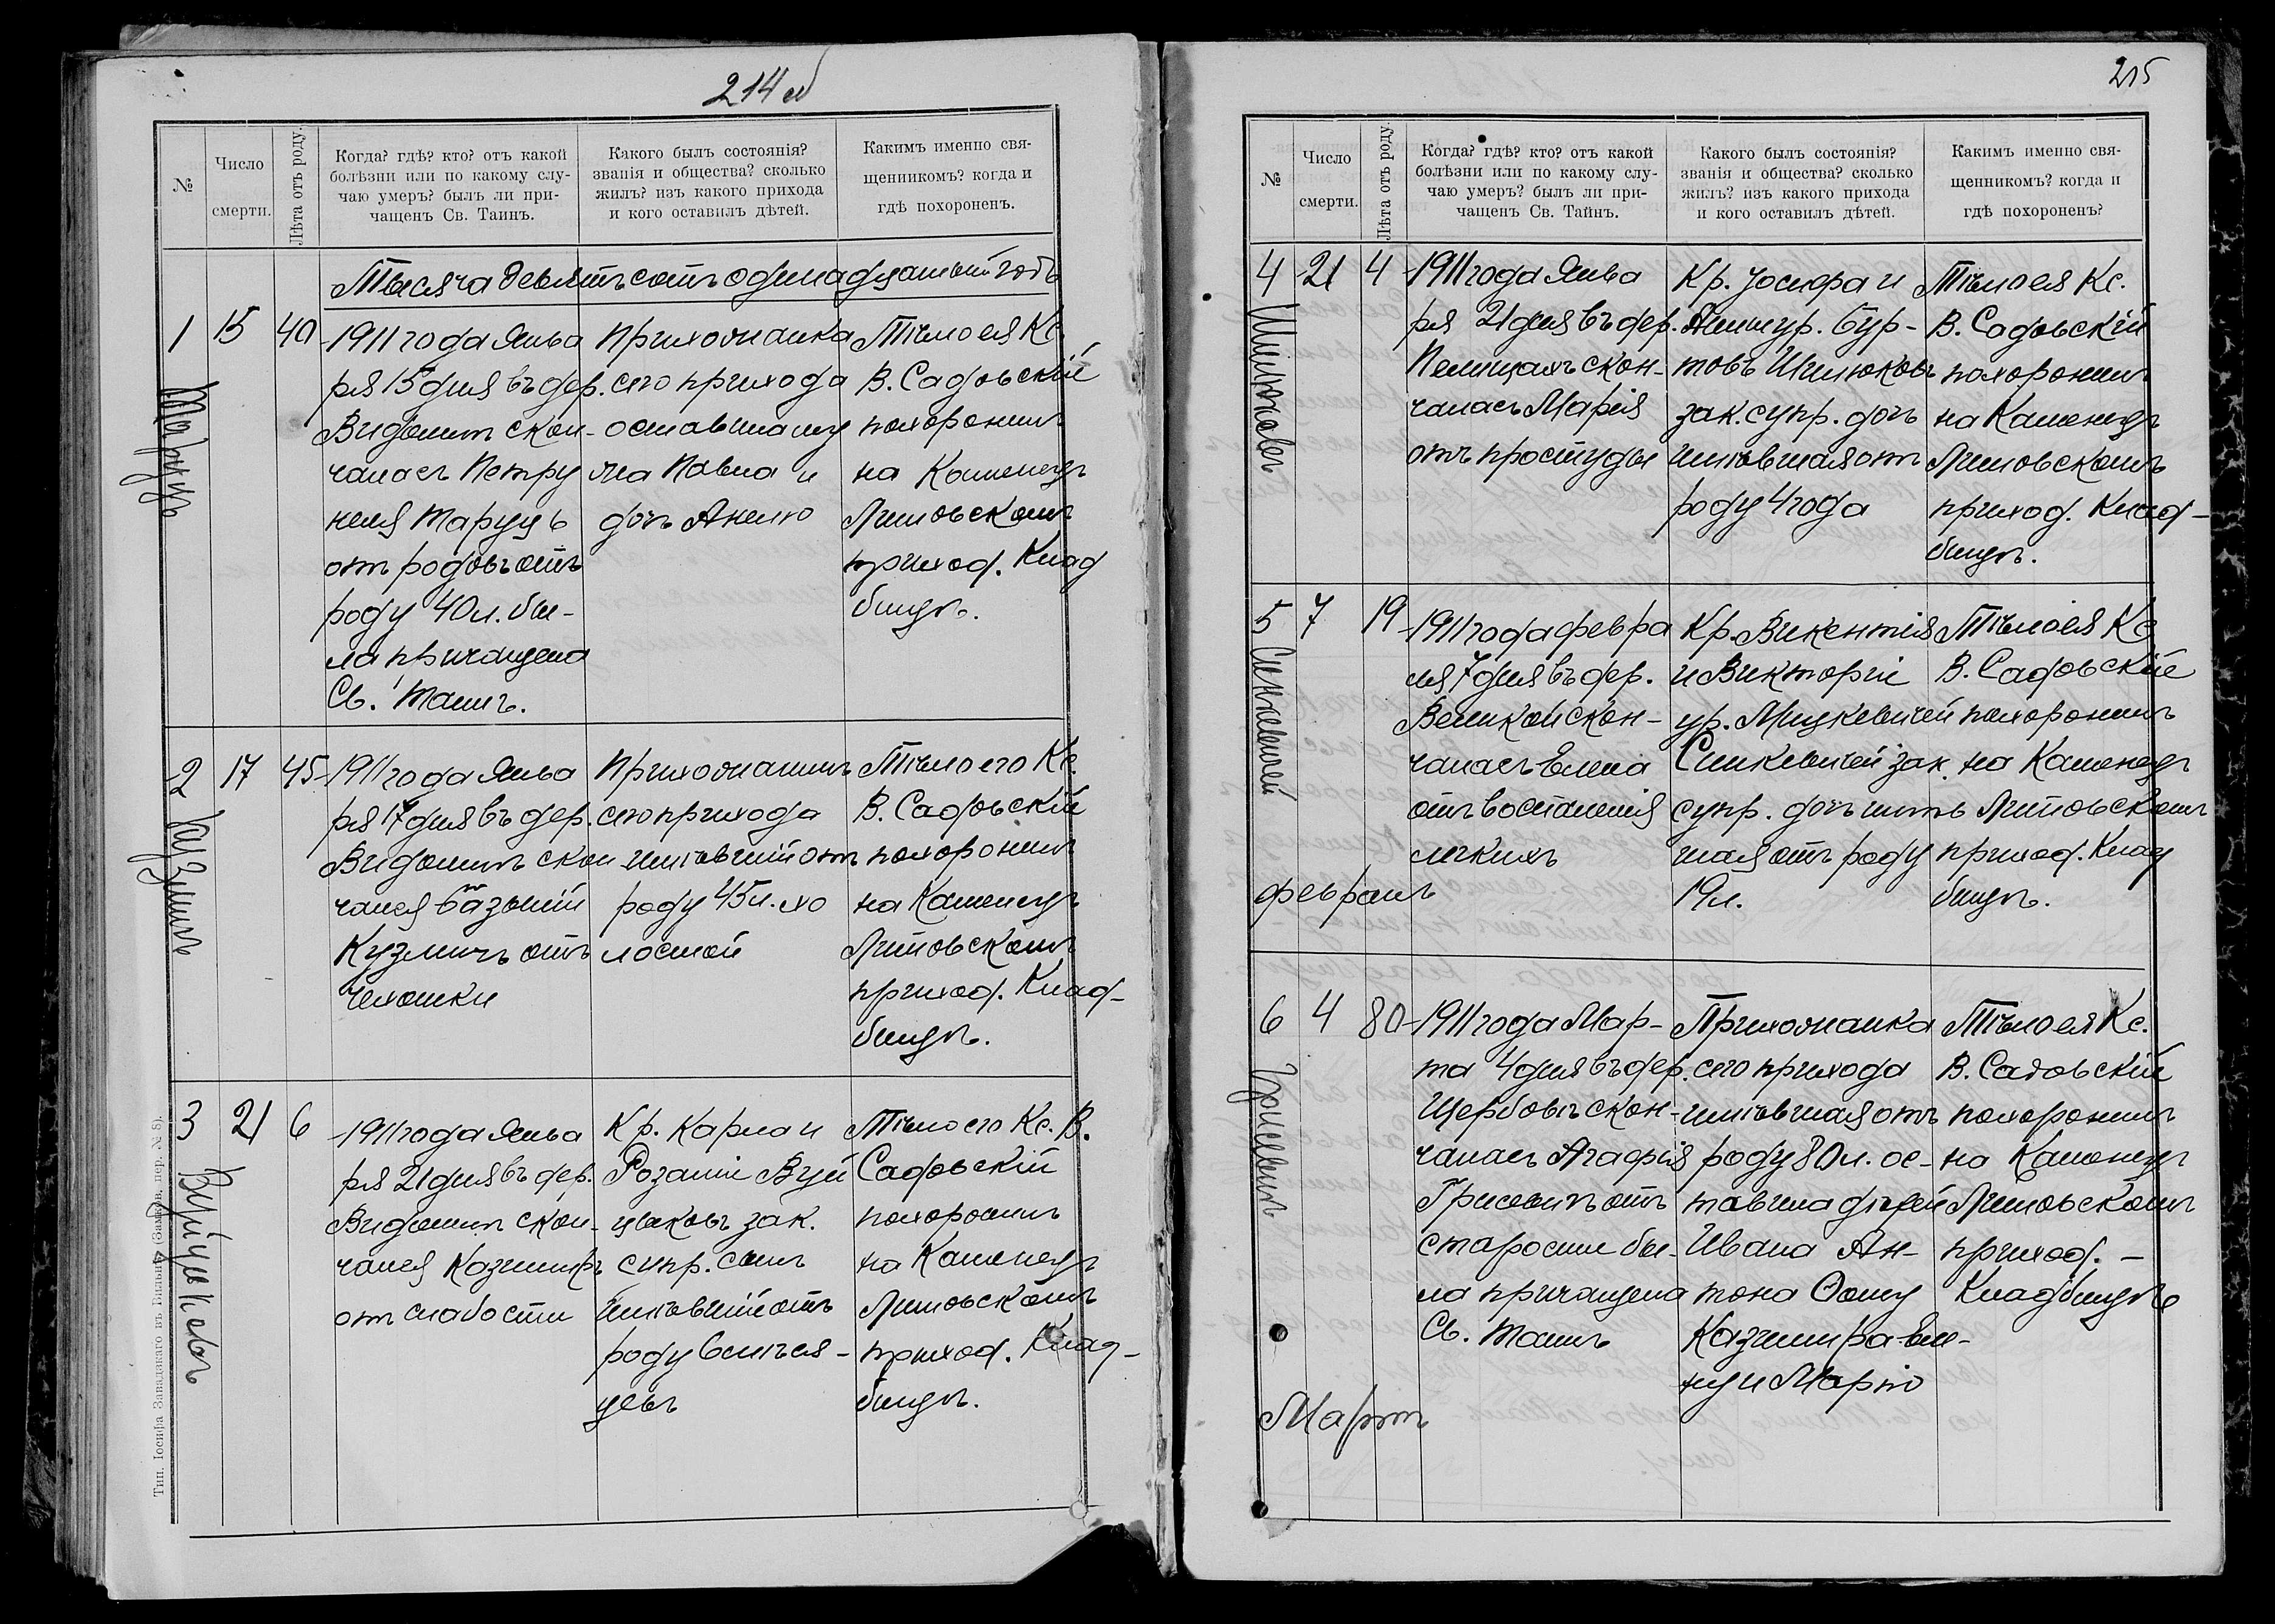 214 об
№
Число
смерти.
Лѣта отъ роду.
Когда? гдѣ? кто? отъ какой
болѣзни или по какому слу-
чаю умеръ? былъ ли при-
чащенъ Св. Таинъ.
Какого былъ состоянія?
званія и общества? сколько
жилъ? изъ какого прихода
и кого оставилъ дѣтей.
Какимъ именно свя-
щенникомъ? когда и
гдѣ похороненъ.
Тысяча девятьсотъ одинадцатый годъ
1
15
40
Таруць
1911 года Янва
ря 15 дня въ дер.
Видомлѣ скон-
чалась Петру
неля Таруць
отъ родовъ отъ
роду 40 л. бы-
ла причащена
Св. Таинъ.
Прихожанка
сего прихода
оставила му
жа Павла и
дочь Анелю
Тѣло ея Кс.
В. Садовскій
похоронилъ
на Каменецъ
Литовскомъ
приход. Клад
бищѣ.
2
17
45
1911 года Янва
ря 17 дня въ дер.
Видомлѣ скон
чался
Кузмичъ отъ
чахотки
Прихожанинъ
сего прихода
имѣвшій отъ
роду 45 л. хо
лостой
Тѣло его Кс.
В. Садовскій
похоронилъ
на Каменецъ
Литовскомъ
приход. Клад-
бищѣ.
3
21
6
Войцуковъ
1911 года Янва
ря 21 дня въ дер.
Видомлѣ скон-
чался Казимиръ
отъ слабости
Кр. Карла и
Розаліи Вуй
цыковъ зак.
супр. сынъ
имѣвшій отъ
роду 6 мѣся-
цевъ
Тѣло его Кс. В.
Садовскій
похоронилъ
на Каменецъ
Литовскомъ
приход. Клад-
бищѣ.
Тип. Іосифа Завадзкаго въ Вильнѣ (Замков. пер. № 8).
215
№
Число
смерти.
Лѣта отъ роду.
Когда? гдѣ? кто? отъ какой
болѣзни или по какому слу-
чаю умеръ? былъ ли при-
чащенъ Св. Тайнъ.
Какого былъ состоянія?
званія и общества? сколько
жилъ? изъ какого прихода
и кого оставилъ дѣтей.
Какимъ именно свя-
щенникомъ? когда и
гдѣ похороненъ?
4
21
4
Шилюковъ
1911 года Янва
ря 21 дня въ дер.
Пелищахъ скон-
чалась Марія
отъ простуды
Кр. Іосифа и
Анны ур. Бур-
товъ Шилюковъ
зак. супр. дочь
имѣвшая отъ
роду 4 года
Тѣло ея Кс.
В. Садовскій
похоронилъ
на Каменецъ
Литовскомъ
приход. Клад-
бищѣ.
5
7
19
Синкевичей
1911 года февра
ля 7 дня въ дер.
Великой скон-
чалась Елена
отъ воспаленія
легкихъ
Кр. Викентія
и Викторіи
ур. Мицкевичей
Синкевичей зак.
супр. дочь имѣв
шая отъ роду
19 л.
Тѣло ея Кс
В. Садовскій
похоронилъ
на Каменецъ
Литовскомъ
приход. Клад
бищѣ.
февраль
6
4
80
1911 года Мар-
та 4 дня въ дер.
Щербовѣ скон-
чалась Агафія
отъ
старости бы-
ла причащена
Св. Таинъ
Прихожанка
сего прихода
имѣвшая отъ
роду 80 л. ос-
тавила дѣтей
Ивана Ан-
тона Ѳому
Казимира Еле-
ну и Марію
Тѣло ея Кс.
В. Садовскій
похоронилъ
на Каменецъ
Литовскомъ
приход. -
Кладбищѣ
Мартъ